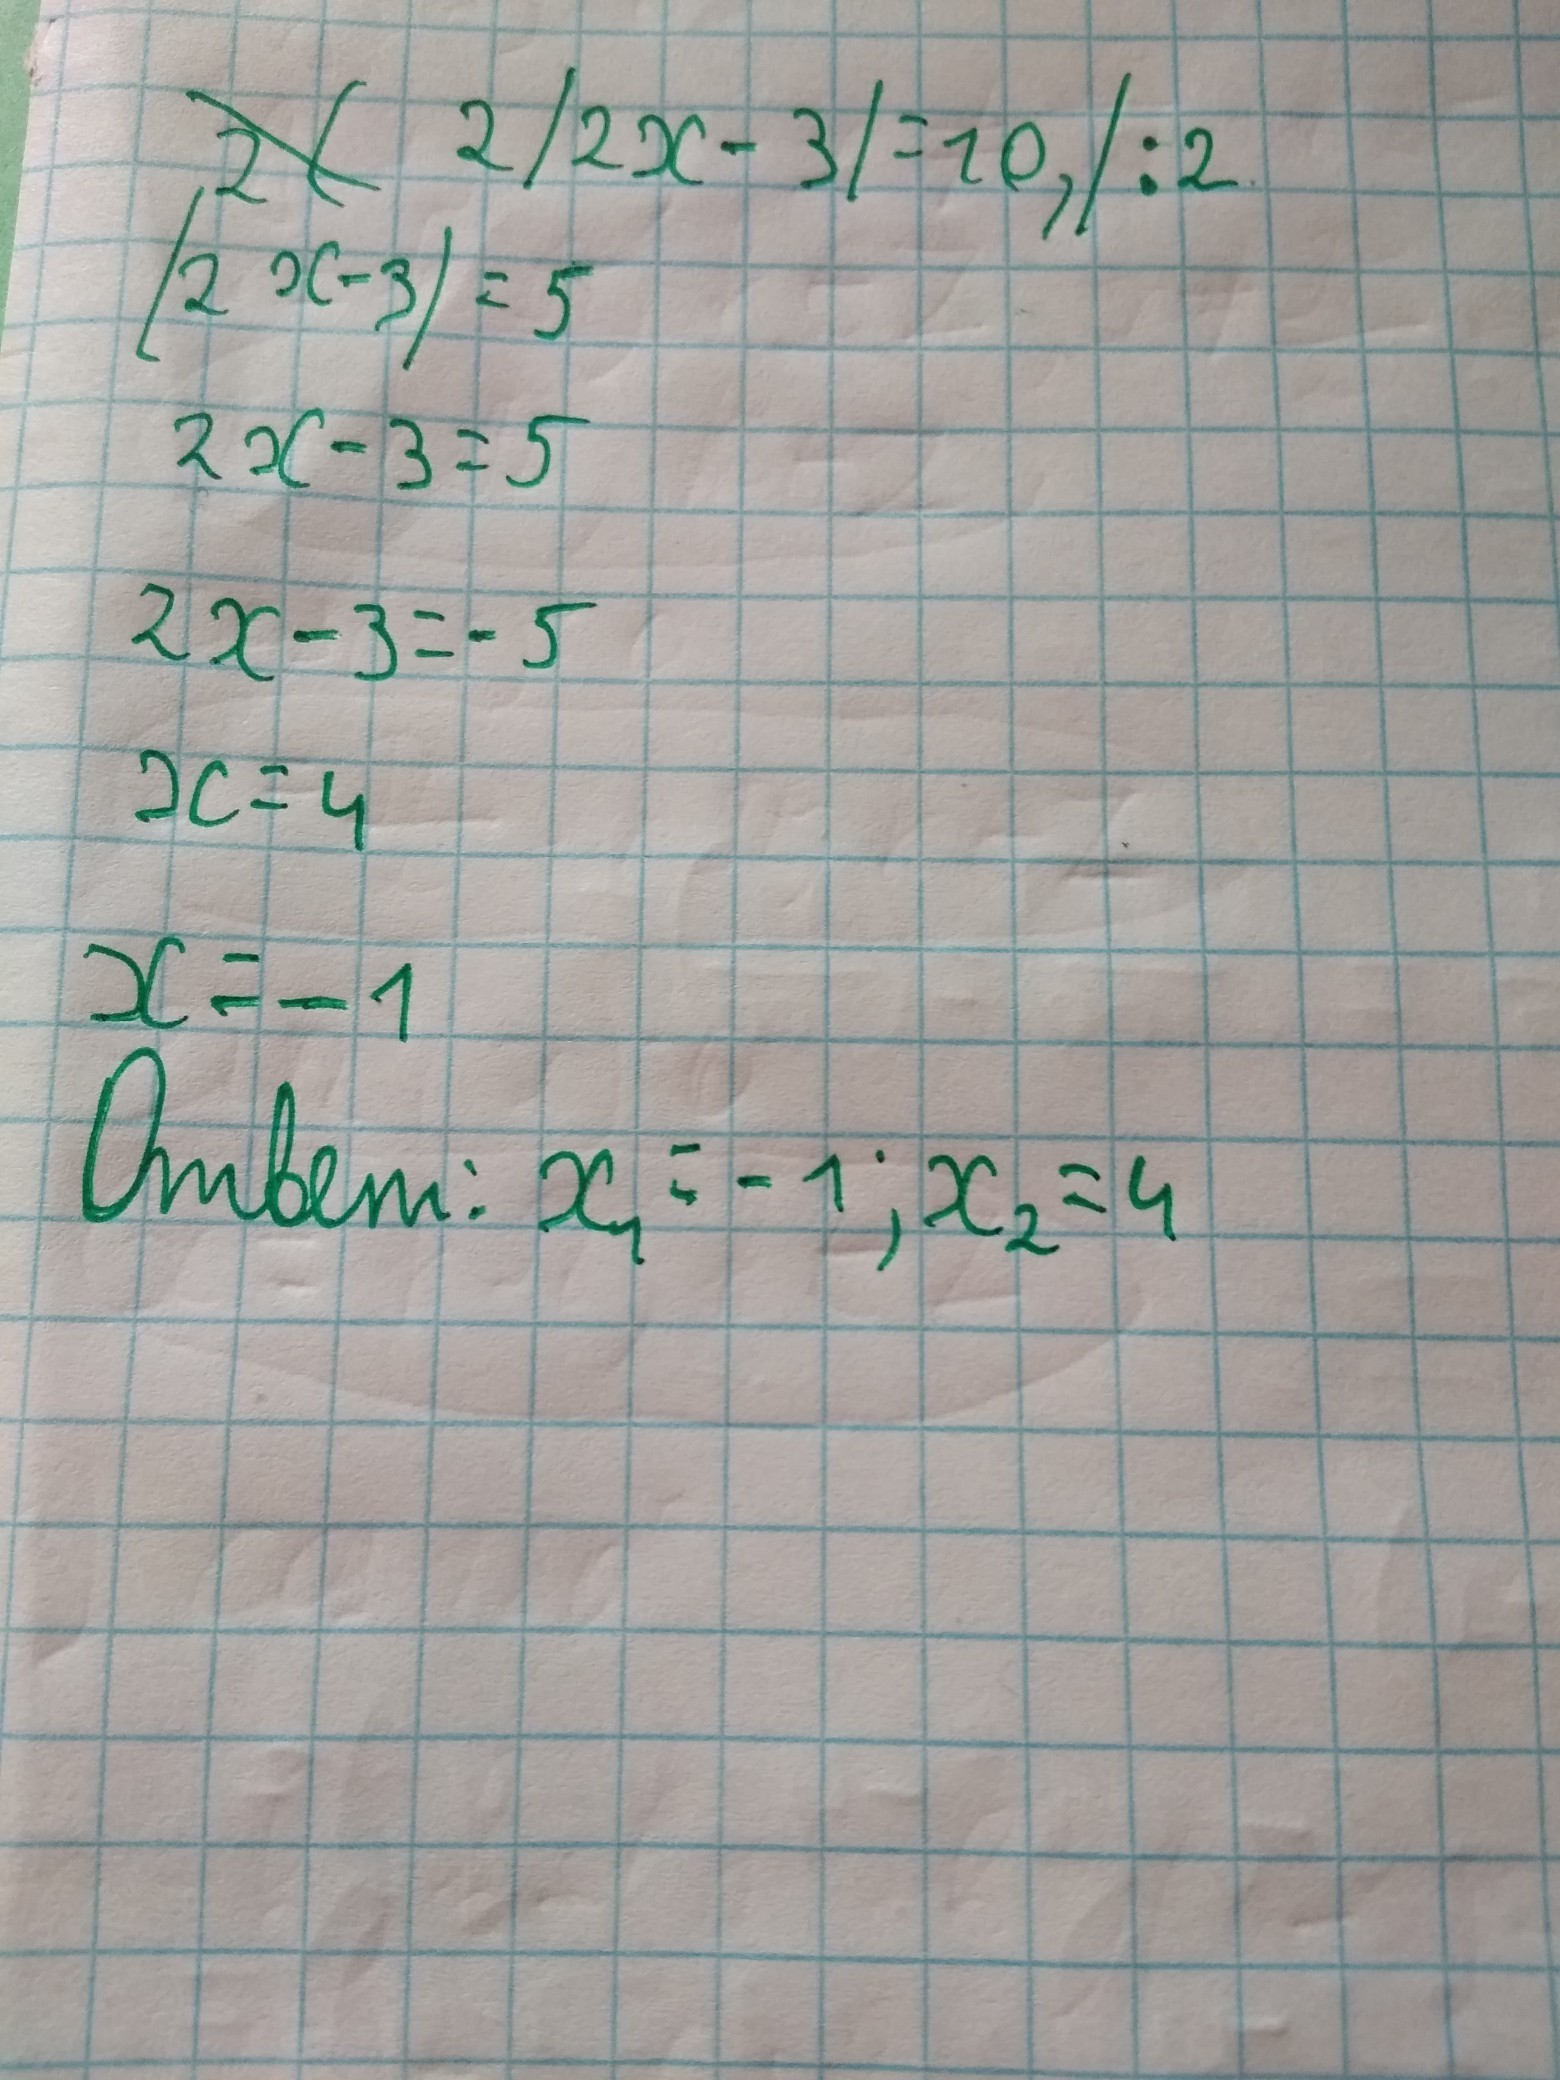 2( 2|2x-3|=10,/:2
|2x-3|=5
2x-3=5
2x-3=-5
x=4
x=-1
Ответ: x₁=-1; x₂=4